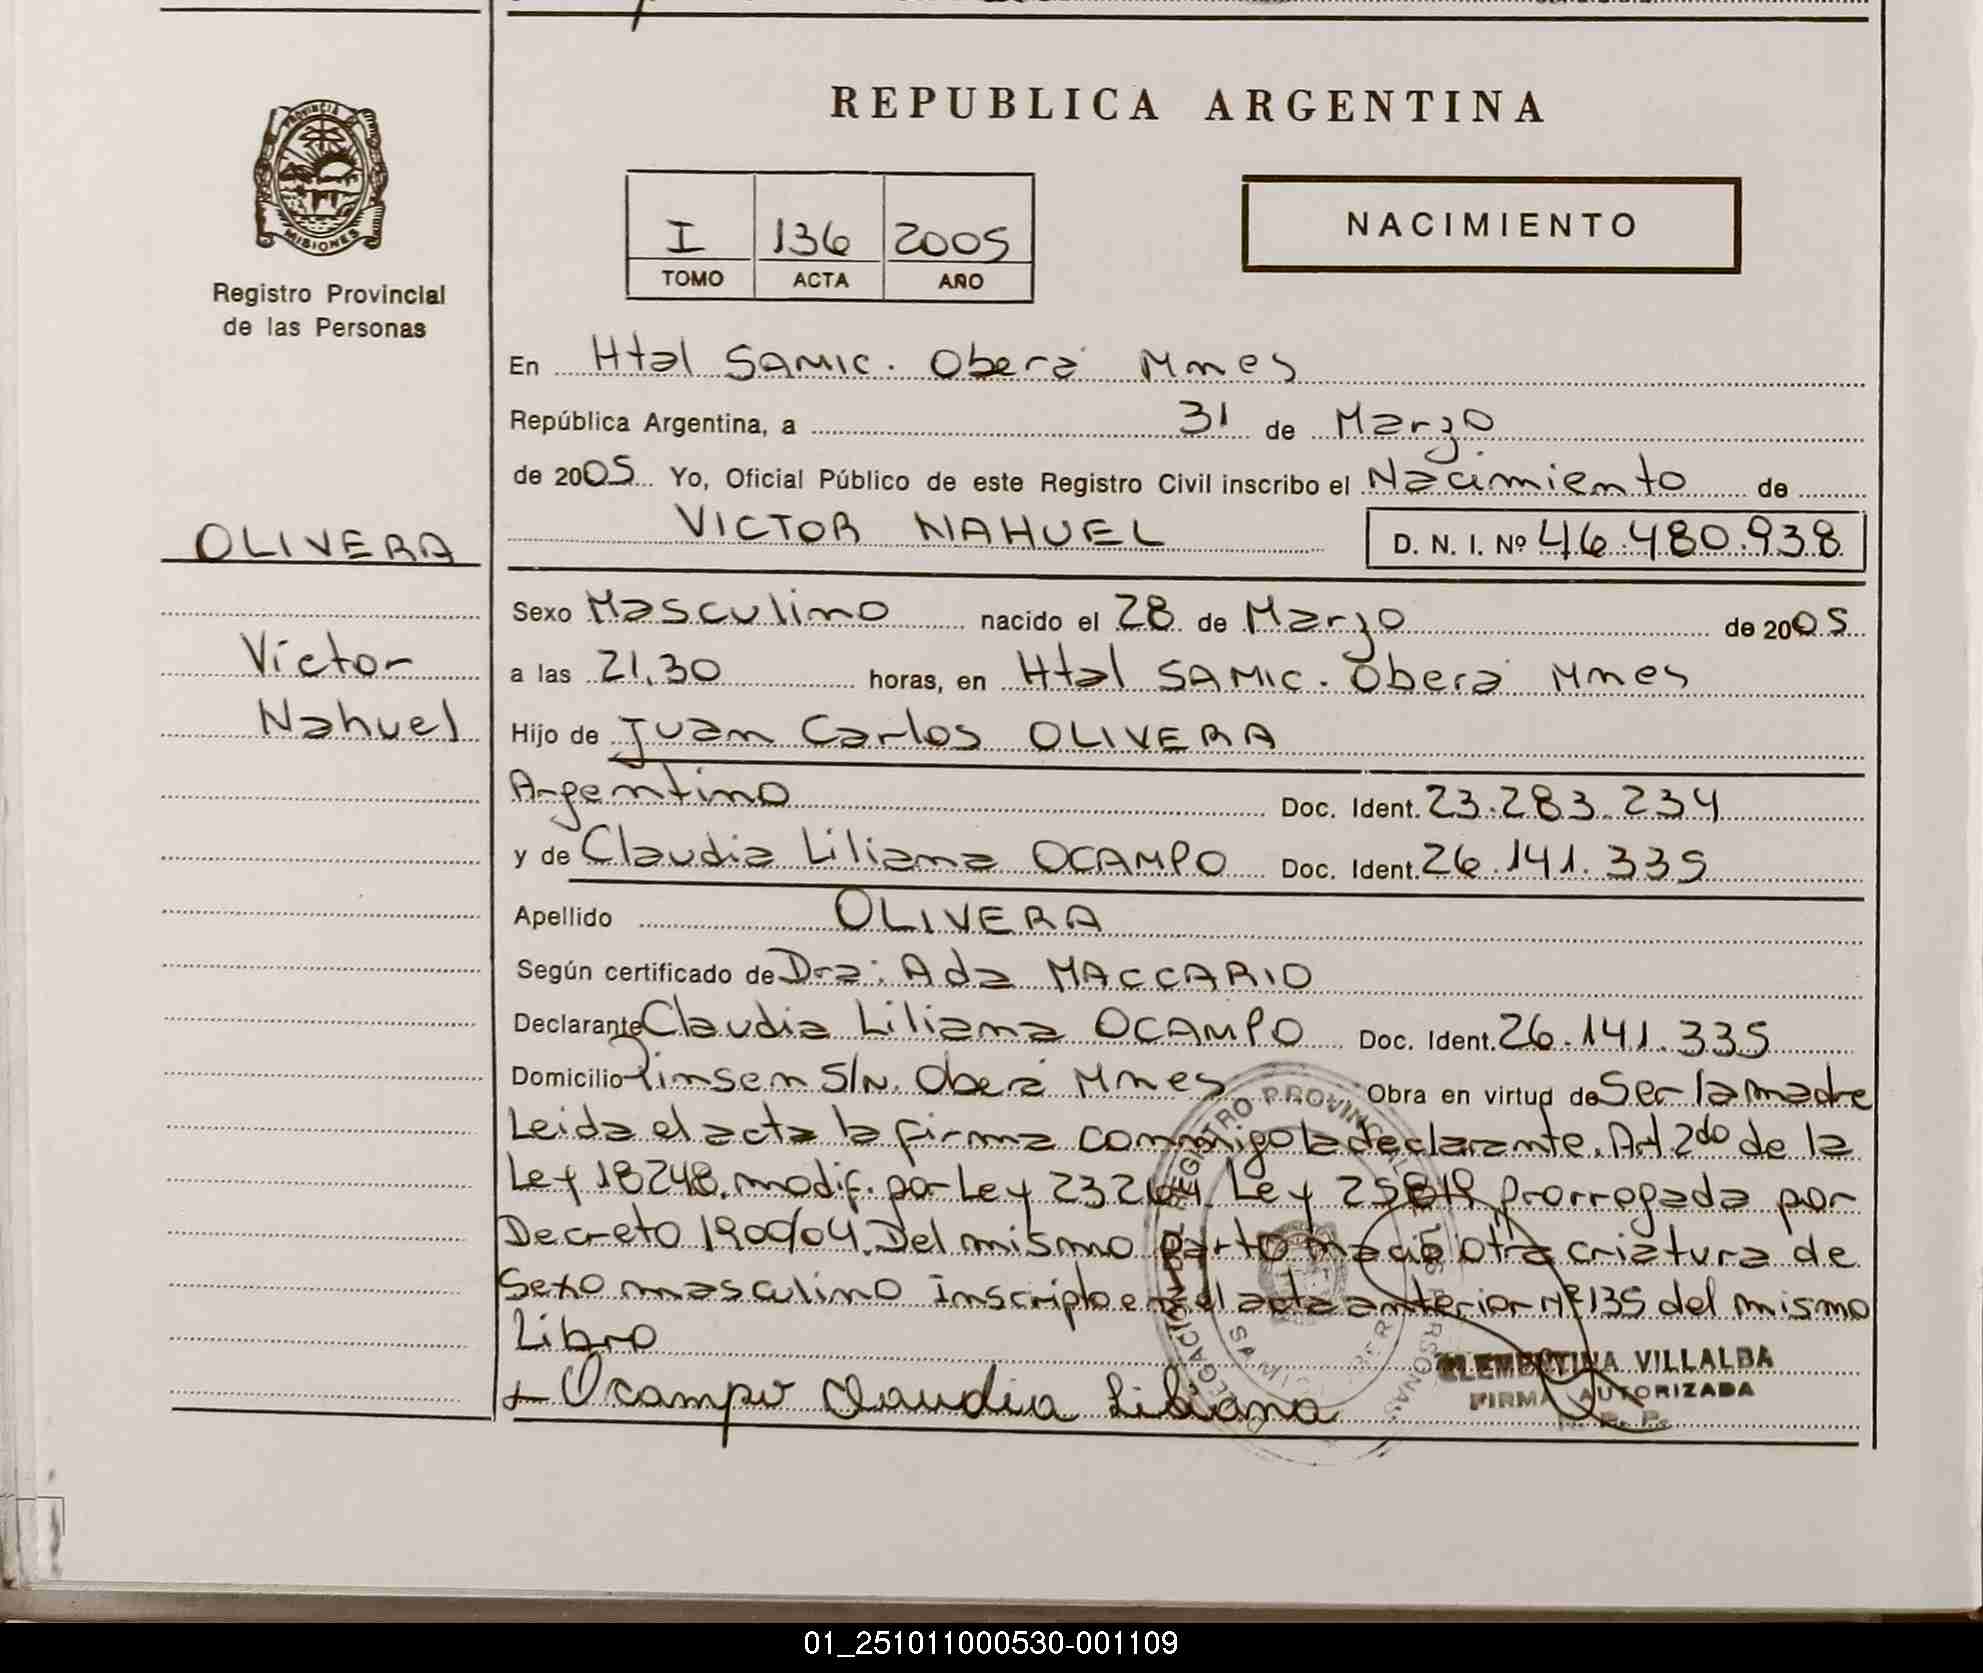 REPUBLICA ARGENTINA
PROVINCIA DE
MISIONES
Registro Provincial
de las Personas
I 136 2005
TOMO ACTA AÑO
NACIMIENTO
En Htal SAMIC. Oberá Mnes
República Argentina, a 31 de Marzo
de 2005 Yo, Oficial Público de este Registro Civil inscribo el Nacimiento de
OLIVERA
VICTOR NAHUEL D. N. I. Nº 46.480.938
Sexo Masculino nacido el 28 de Marzo de 2005
Victor
a las 21.30 horas, en Htal SAMIC. Oberá Mnes
Nahuel
Hijo de Juan Carlos OLIVERA
Argentino Doc. Ident. 23.283.234
y de Claudia Liliana OCAMPO Doc. Ident. 26.141.335
Apellido OLIVERA
Según certificado de Dra: Ada MACCARIO
Declarante Claudia Liliana OCAMPO Doc. Ident. 26.141.335
Domicilio S/N. Oberá Mnes Obra en virtud de Ser la madre
Leida el acta la firma conmigo la declarante. Art 2do de la
Ley 18248. modif. por Ley 23264. Ley 25819 prorrogada por
Decreto 1900/04. Del mismo parto nació otra criatura de
Sexo masculino inscripto en el acta anterior Nº 135 del mismo
Libro
Ocampo Claudia Liliana
CLEMENTINA VILLALBA
FIRMA AUTORIZADA
R. P. P.
01_251011000530-001109